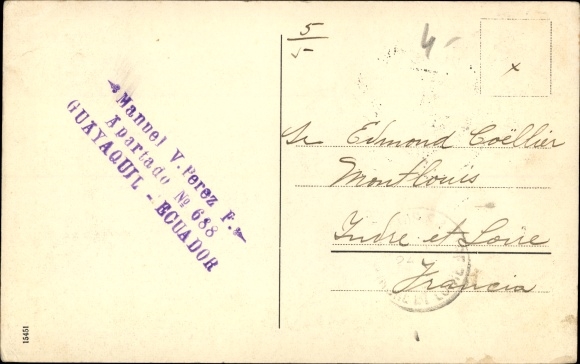 5/5
4-
x
Manuel V. Perez P.
Apartado Nº 688
GUAYAQUIL - ECUADOR
Sr Edmond Coëllier
Montlouis
Indre et Loire
Francia
15451